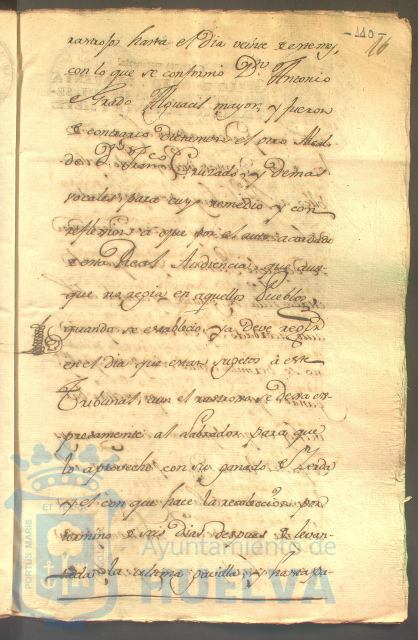 -140-
16
rastrojos hasta el dia veinte septiem,
con lo que se conformó Dn Antonio
Prado Alguacil mayor, y fueron
contrario Dictamen el otro Alcal-
de Dn Franco Cruzado, y demas
vocales, para cuyo remedio y con
reflexion a que por el auto acordado
esta Real Audiencia, que aun-
que no regia en aquellos Pueblos
quando se establecio, ya deve regir
en el dia que estan sugetos à este
Tribunal, aun el rastrojo se dexa ex-
presamente al Labrador para que
lo aproveche con su ganado Zerda
y el con que hace la recoleccion por
termino seis dias despues levan-
tada la ultima gavilla, y hasta pa-
PORTUS MARIS
Ayuntamiento de
HUELVA